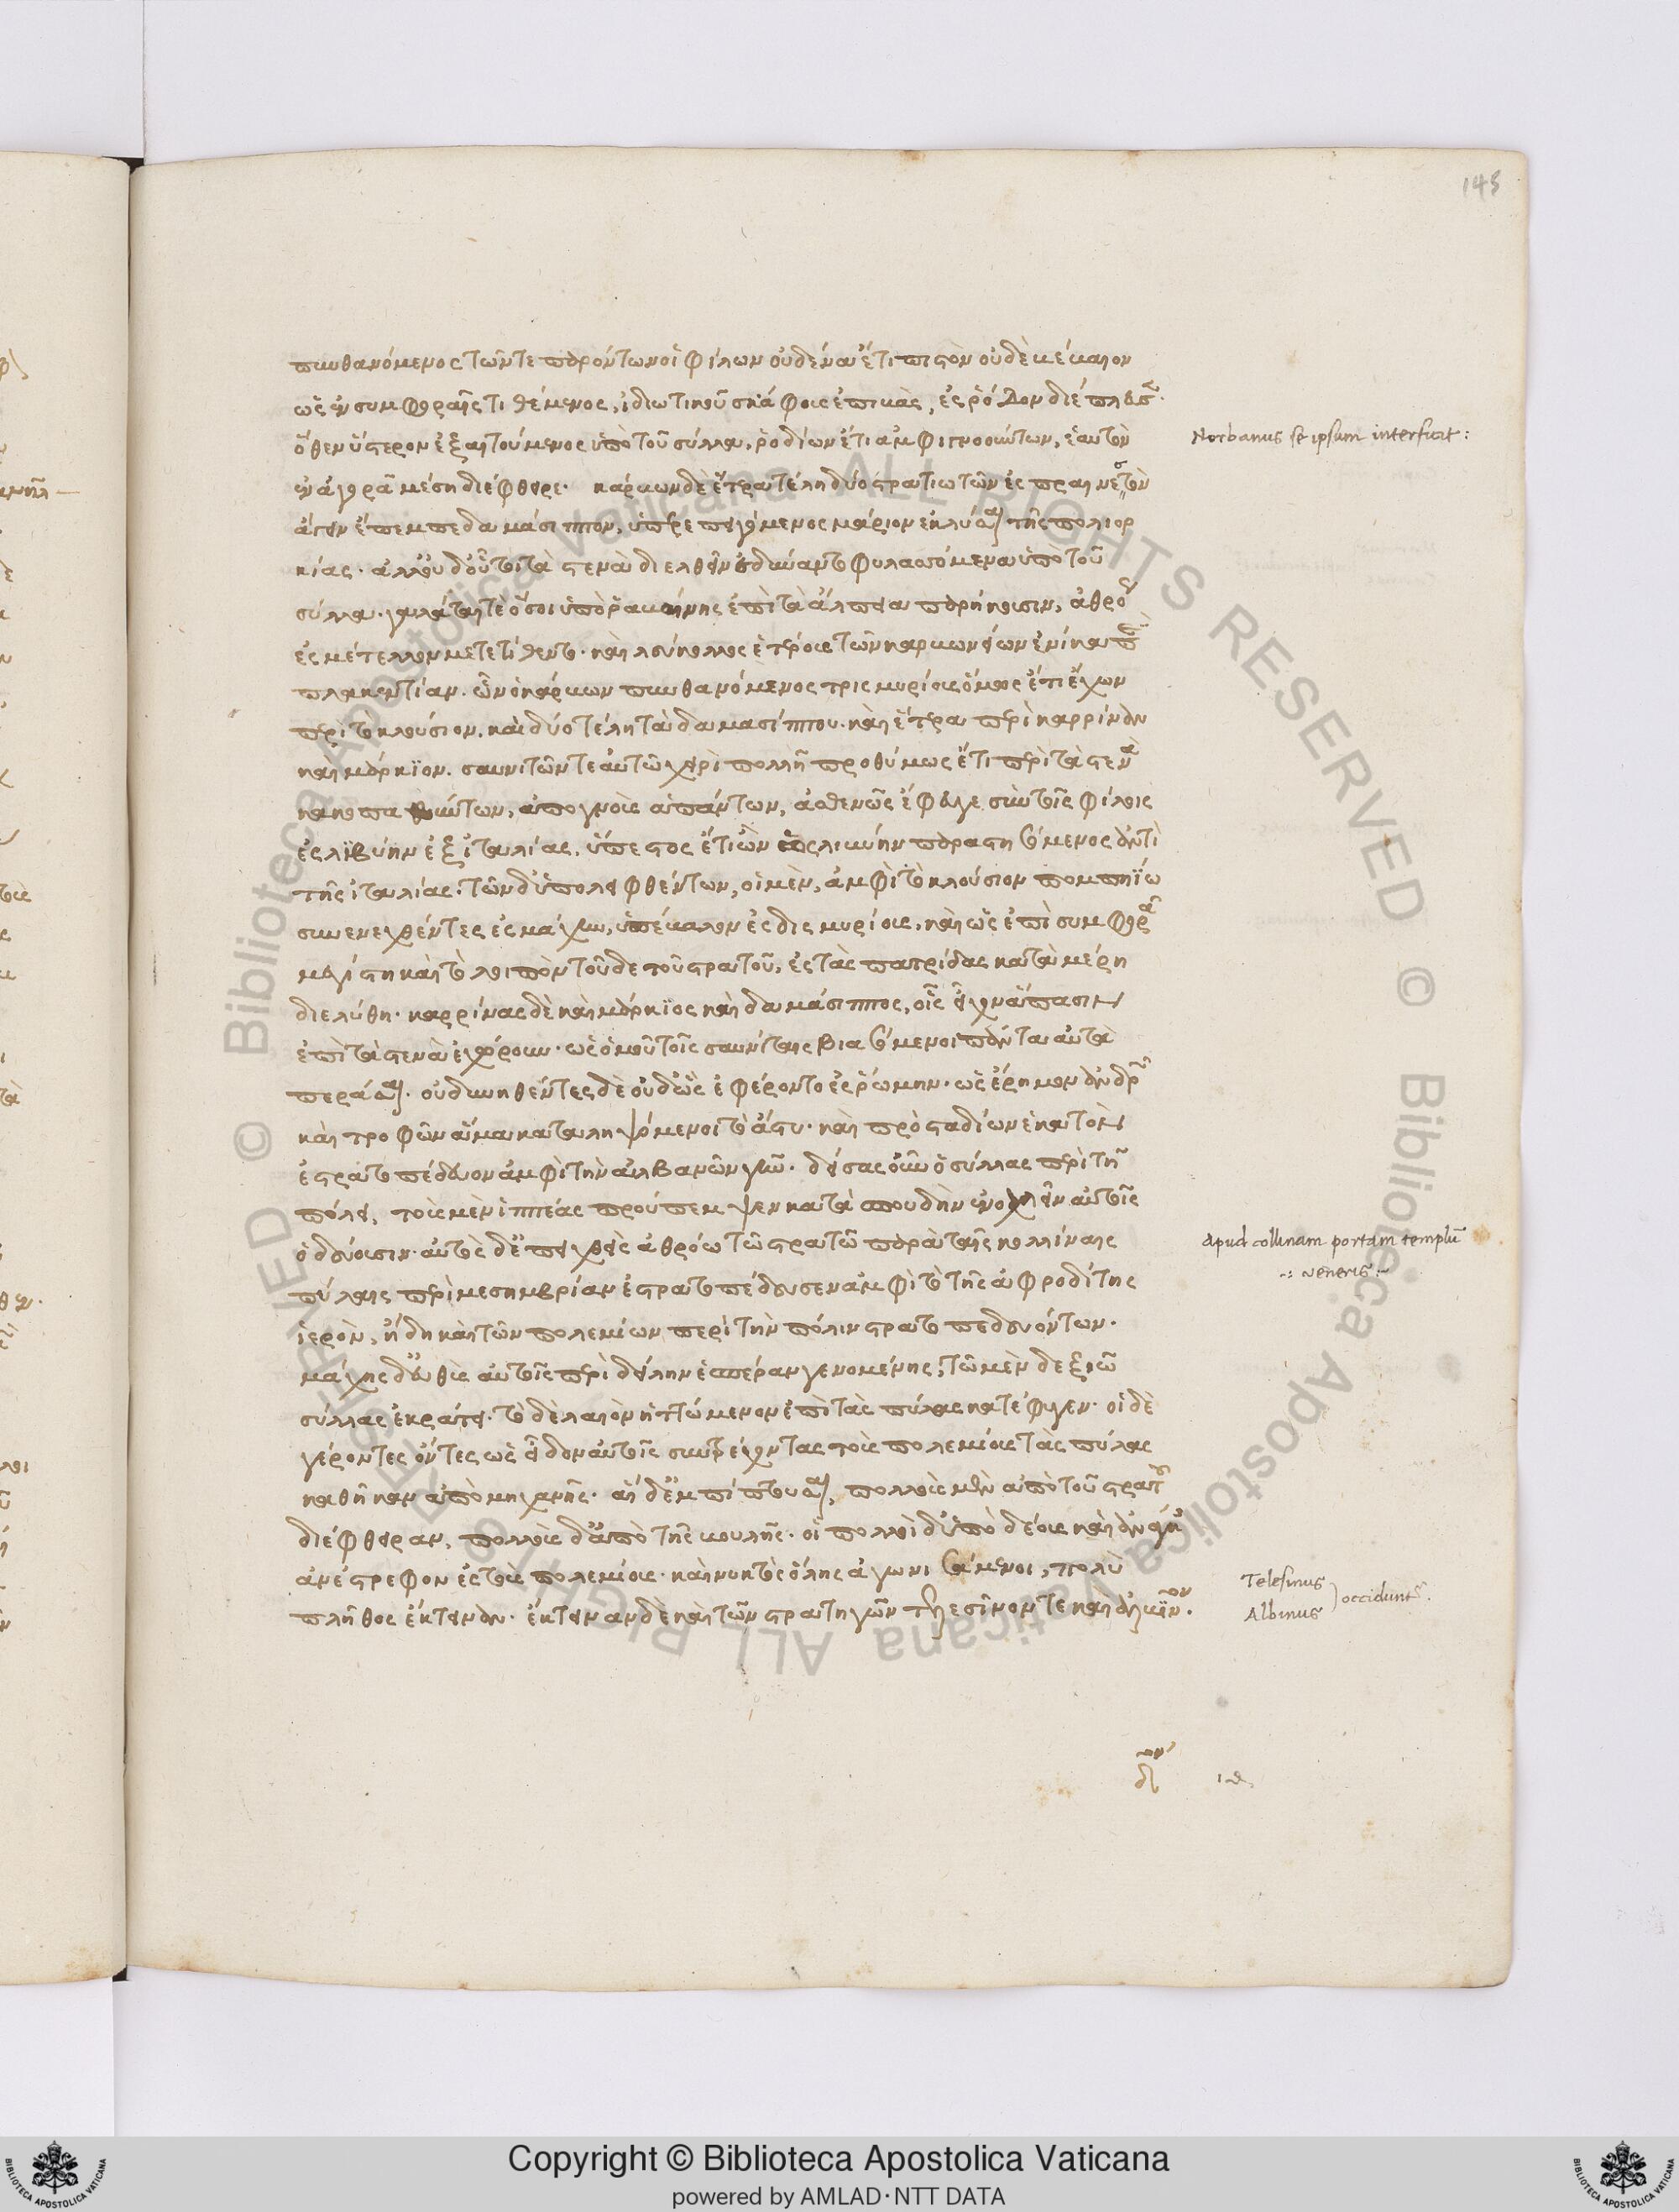 145
πυνθανόμενος τῶν τε παρόντων οἱ φίλων οὐδένα ἔτι πιστὸν οὐδὲ βέβαιον
ὡς ἐν συμφοραῖς τιθέμενος, ἰδιωτικοῦ σκάφους ἐπιβὰς, ἐς ῥόδον διέπλευσε.
ὅθεν ὕστερον ἐξαιτούμενος ὑπὸ τοῦ σύλλα, ῥοδίων ἔτι ἀμφιγνοούντων, ἑαυτὸν
ἐν ἀγορᾷ μέσῃ διέφθειρε. κάρβων δὲ ἕτερα τέλη δύο στρατιωτῶν ἐς πραινεστὸν
ἄγειν ἔπεμπε δαμάσιππον, ὑπερεπειγόμενος μάριον ἐκλῦσαι τῆς πολιορ
κίας. ἀλλ' οὐδ' οὗτοι τὰ στενὰ διελθεῖν ἐδύναντο φυλασσόμενα ὑπὸ τοῦ
σύλλα. γαλάται τὲ ὅσοι ἀπὸ ῥαβέννης ἐπὶ τὰ ἄλπεια παρήκουσιν, ἀθρόως
ἐς μέτελλον μετετίθεντο. καὶ λεύκολλος ἑτέρους τῶν καρβωνείων ἐνίκα περὶ
πλακεντίαν. ὧν ὁ κάρβων πυνθανόμενος τρισμυρίους ὅμως ἔτι ἔχων
περὶ τὸ κλούσιον. καὶ δύο τέλη τὰ δαμασίππου. καὶ ἕτερα περὶ καρρίναν
καὶ μάρκιον. σαυνιτῶν τε αὐτῷ χειρὶ πολλῇ προθύμως ἔτι περὶ τὰ στενὰ
κακοπαθούντων, ἀπογνοὺς ἁπάντων, ἀσθενῶς ἔφευγε σὺν τοῖς φίλοις
ἐς λιβύην ἐξ ἰταλίας, ὕπατος ἔτι ὢν ὡς λιβύην παραστησόμενος ἀντὶ
τῆς ἰταλίας. τῶν δ' ὑπολειφθέντων, οἱ μὲν, ἀμφὶ τὸ κλούσιον πομπηίῳ
συνενεχθέντες ἐς μάχην, ἀπέβαλον ἐς δισμυρίους. καὶ ὡς ἐπὶ συμφορᾷ
μεγίστῃ καὶ τὸ λοιπὸν τοῦδε τοῦ στρατοῦ, ἐς τὰς πατρίδας κατὰ μέρη
διελύθη. καρρίνας δὲ καὶ μάρκιος καὶ δαμάσιππος, οἷς εἶχον ἅπασιν
ἐπὶ τὰ στενὰ ἐχώρουν. ὡς ὁμοῦ τοῖς σαυνίταις βιασόμενοι πάντα αὐτὰ
περᾶσαι. οὐ δυνηθέντες δὲ οὐδ' ὣς ἐφέροντο ἐς ῥώμην. ὡς ἔρημον ἀνδρῶν
καὶ τροφῶν ἅμα καταληψόμενοι τὸ ἄστυ. καὶ πρὸ σταδίων ἑκατὸν
ἐστρατοπέδευον ἀμφὶ τὴν ἀλβανῶν γῆν. δείσας οὖν ὁ σύλλας περὶ τῇ
πόλει, τοὺς μὲν ἱππέας προύπεμψεν κατὰ σπουδὴν ἐνοχλεῖν αὐτοῖς
ὁδεύουσιν. αὐτὸς δ' ἐπειχθεὶς ἀθρόῳ τῷ στρατῷ παρὰ ταῖς κολλίναις
πύλαις περὶ μεσημβρίαν ἐστρατοπέδευσεν ἀμφὶ τὸ τῆς ἀφροδίτης
ἱερὸν, ἤδη καὶ τῶν πολεμίων περὶ τὴν πόλιν στρατοπεδευόντων.
μάχης δ' εὐθὺς αὐτοῖς περὶ δείλην ἑσπέραν γενομένης, τῷ μὲν δεξιῷ
σύλλας ἐκράτει. τὸ δὲ λαιὸν ἡττώμενον ἐπὶ τὰς πύλας κατέφυγεν. οἱ δὲ
γέροντες ὄντες ὡς εἶδον αὐτοῖς συντρέχοντας τοὺς πολεμίους τὰς πύλας
καθῆκαν ἀπὸ μηχανῆς. αἳ δ' ἐμπίπτουσαι, πολλοὺς μὲν ἀπὸ τοῦ στρατοῦ
διέφθειραν, πολλοὺς δ' ἀπὸ τῆς βουλῆς. οἱ πολλοὶ δ' ὑπὸ δέους καὶ ἀνάγκης
ἀνέστρεφον ἐς τοὺς πολεμίους. καὶ νυκτὸς ὅλης ἀγωνισάμενοι, πολὺ
πλῆθος ἔκτειναν. ἔκτειναν δὲ καὶ τῶν στρατηγῶν τελεσῖνόν τε καὶ ἀλβῖνον.
Norbanus se ipsum interfecit:
Apud collinam portam templū
.: veneris :.
Telesinus
Albinus
occidunt.